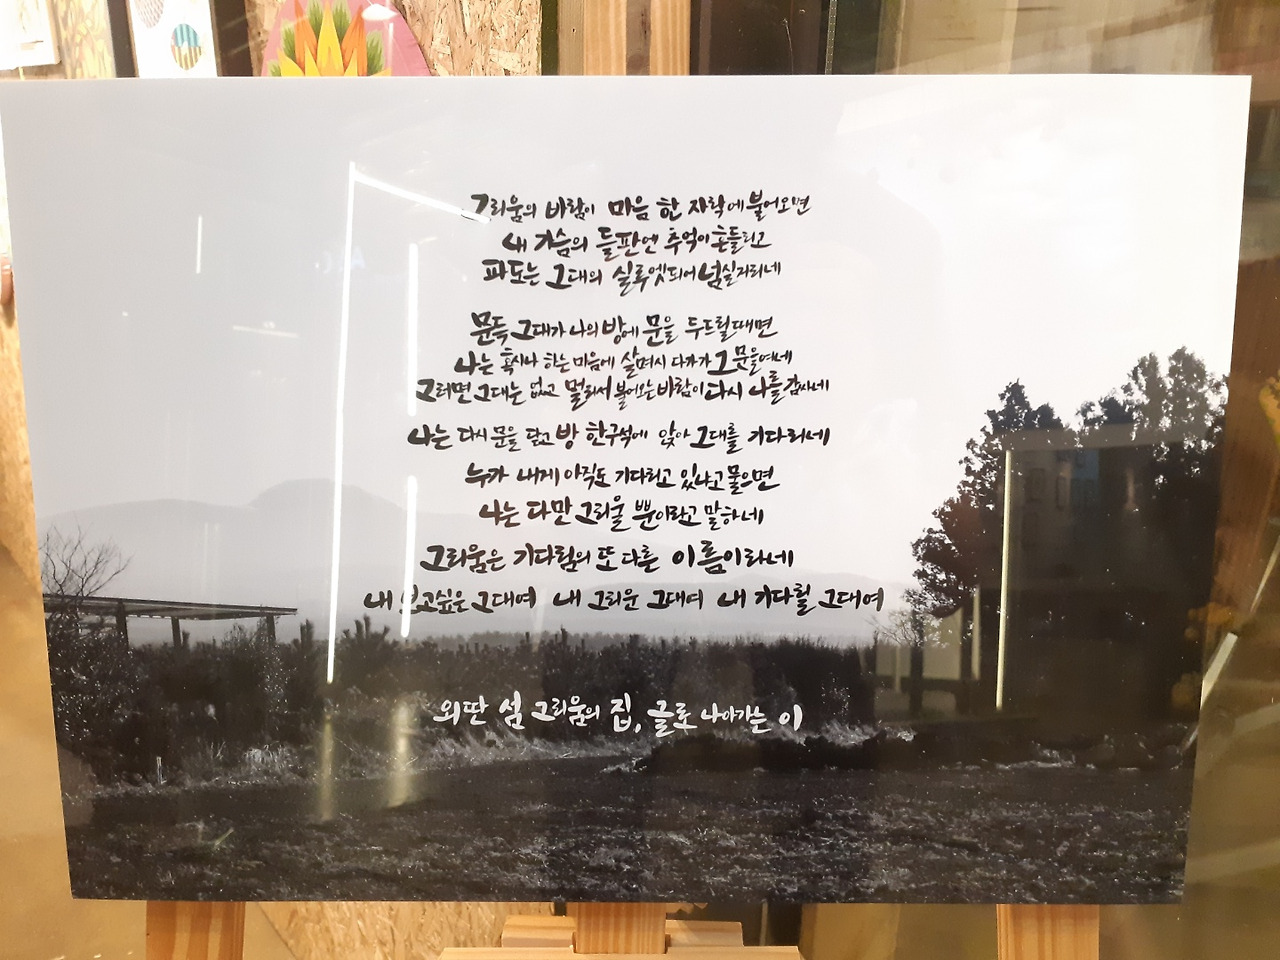 그리움의 바람이 마음 한 자락에 불어오면
내 가슴의 들판엔 추억이 흔들리고
파도는 그대의 실루엣되어 넘실거리네
문득 그대가 나의 방에 문을 두드릴때면
나는 혹시나 하는 마음에 살며시 다가가 그 문을 여네
그러면 그대는 없고 멀리서 불어오는 바람이 다시 나를 감싸네
나는 다시 문을 닫고 방 한구석에 앉아 그대를 기다리네
누가 내게 아직도 기다리고 있냐고 물으면
나는 다만 그리울 뿐이라고 말하네
그리움은 기다림의 또 다른 이름이라네
내 보고싶은 그대여 내 그리운 그대여 내 기다릴 그대여
외딴 섬 그리움의 집, 글로 나아가는 이